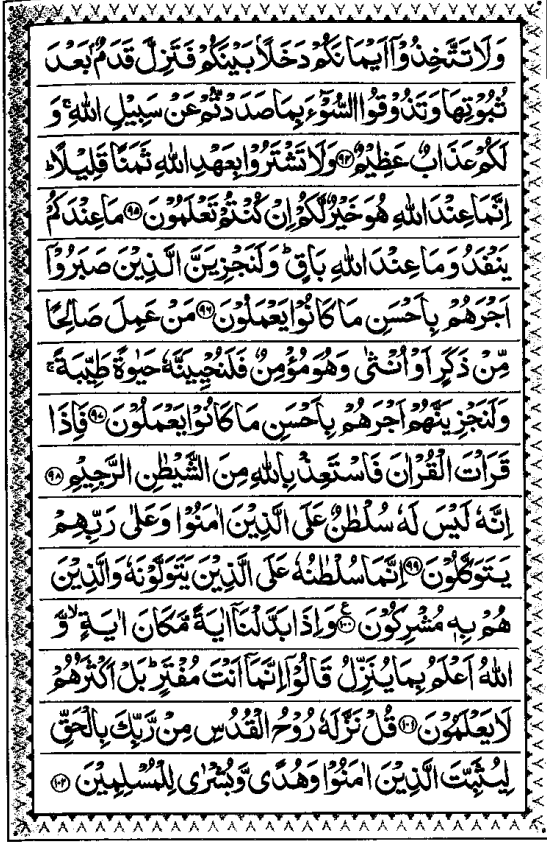 وَلَا تَتَّخِذُوْۤا اَيْمَانَكُمْ دَخَلًاۢ بَيْنَكُمْ فَتَزِلَّ قَدَمٌۢ بَعْدَ
ثُبُوْتِهَا وَتَذُوْقُوا السُّوْۤءَ بِمَا صَدَدْتُّمْ عَنْ سَبِيْلِ اللّٰهِ ۚ وَ
لَكُمْ عَذَابٌ عَظِيْمٌ ﴿۹۴﴾ وَلَا تَشْتَرُوْا بِعَهْدِ اللّٰهِ ثَمَنًا قَلِيْلًا ؕ
اِنَّمَا عِنْدَ اللّٰهِ هُوَ خَيْرٌ لَّكُمْ اِنْ كُنْتُمْ تَعْلَمُوْنَ ﴿۹۵﴾ مَا عِنْدَكُمْ
يَنْفَدُ وَمَا عِنْدَ اللّٰهِ بَاقٍ ؕ وَلَنَجْزِيَنَّ الَّذِيْنَ صَبَرُوْۤا
اَجْرَهُمْ بِاَحْسَنِ مَا كَانُوْا يَعْمَلُوْنَ ﴿۹۶﴾ مَنْ عَمِلَ صَالِحًا
مِّنْ ذَكَرٍ اَوْ اُنْثٰى وَهُوَ مُؤْمِنٌ فَلَنُحْيِيَنَّهٗ حَيٰوةً طَيِّبَةً ۚ
وَلَنَجْزِيَنَّهُمْ اَجْرَهُمْ بِاَحْسَنِ مَا كَانُوْا يَعْمَلُوْنَ ﴿۹۷﴾ فَاِذَا
قَرَاْتَ الْقُرْاٰنَ فَاسْتَعِذْ بِاللّٰهِ مِنَ الشَّيْطٰنِ الرَّجِيْمِ ﴿۹۸﴾
اِنَّهٗ لَيْسَ لَهٗ سُلْطٰنٌ عَلَى الَّذِيْنَ اٰمَنُوْا وَعَلٰى رَبِّهِمْ
يَتَوَكَّلُوْنَ ﴿۹۹﴾ اِنَّمَا سُلْطٰنُهٗ عَلَى الَّذِيْنَ يَتَوَلَّوْنَهٗ وَالَّذِيْنَ
هُمْ بِهٖ مُشْرِكُوْنَ ﴿۱۰۰﴾ ع وَاِذَا بَدَّلْنَاۤ اٰيَةً مَّكَانَ اٰيَةٍ ۙ وَّ
اللّٰهُ اَعْلَمُ بِمَا يُنَزِّلُ قَالُوْۤا اِنَّمَاۤ اَنْتَ مُفْتَرٍ ؕ بَلْ اَكْثَرُهُمْ
لَا يَعْلَمُوْنَ ﴿۱۰۱﴾ قُلْ نَزَّلَهٗ رُوْحُ الْقُدُسِ مِنْ رَّبِّكَ بِالْحَقِّ
لِيُثَبِّتَ الَّذِيْنَ اٰمَنُوْا وَهُدًى وَّبُشْرٰى لِلْمُسْلِمِيْنَ ﴿۱۰۲﴾